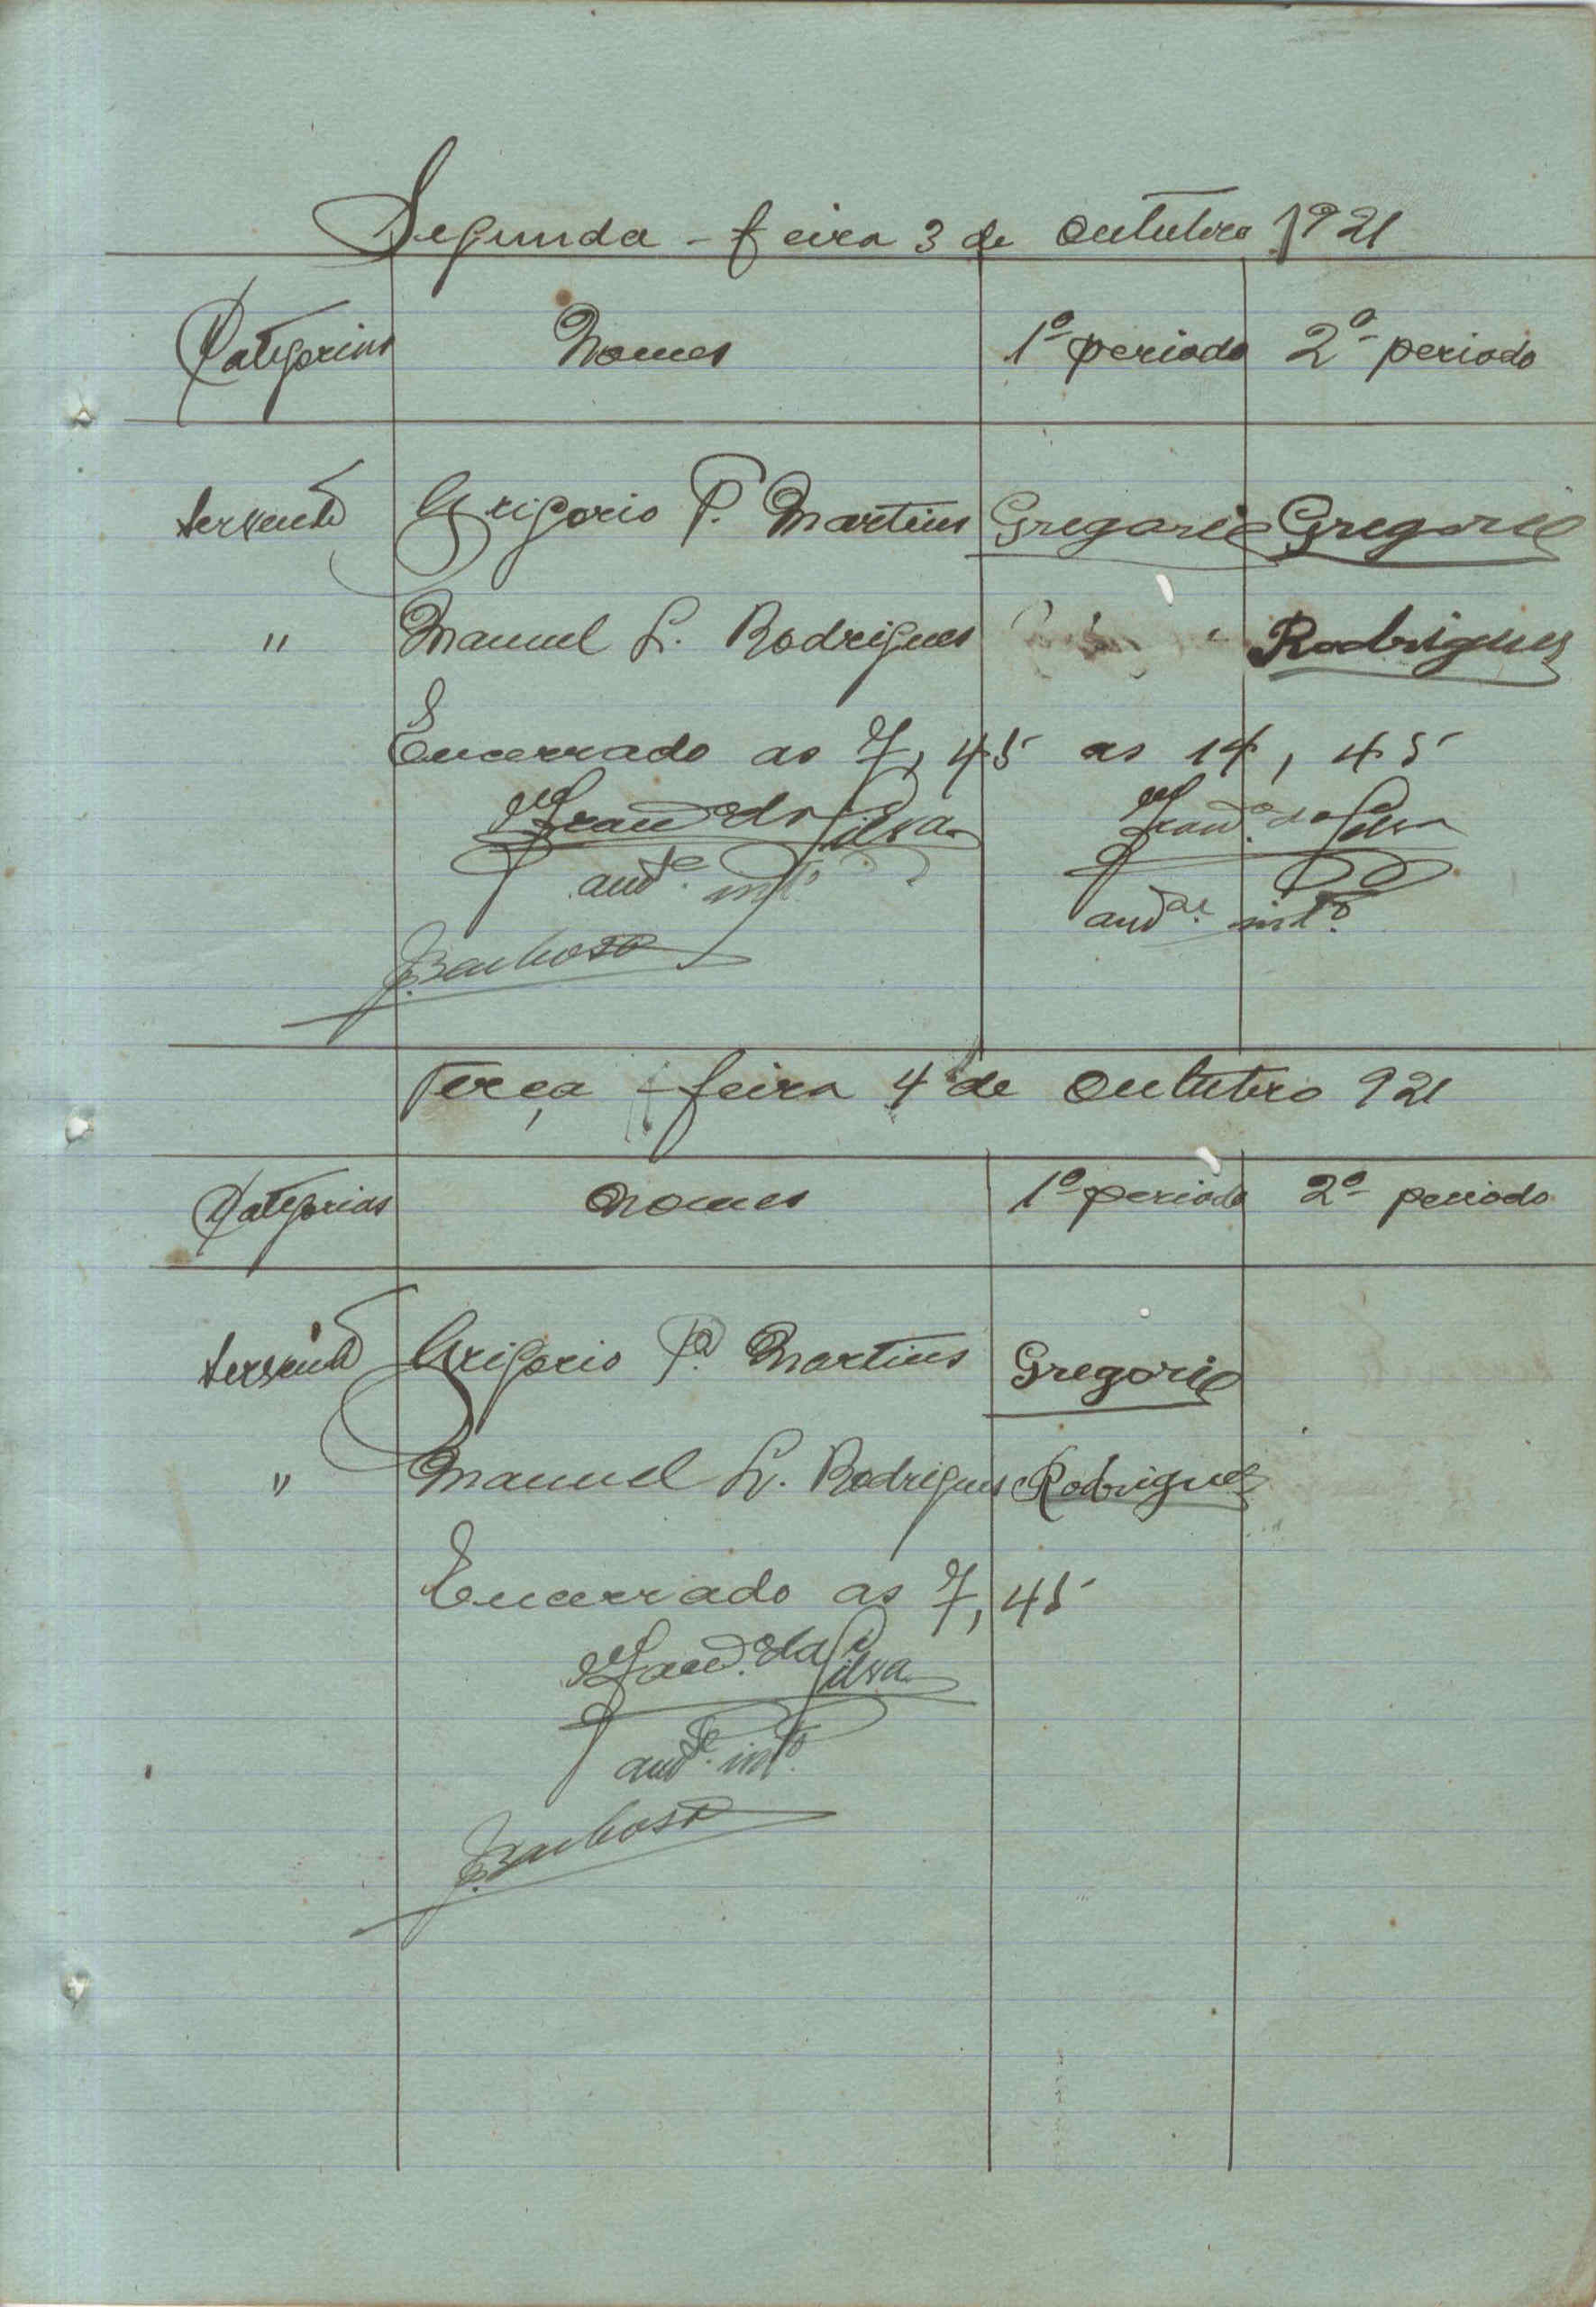 Segunda-feira 3 de Outubro 1921
Categorias Nomes 1º periodo 2º periodo
servente Grigorio P. Martins Gregorio Gregorio
" Manuel L. Rodrigues Rodrigues
Encerrado as 7,45 as 14,45
Franco da Silva Franco da Silva
into. into.
J. Barbosa
Terça-feira 4 de Outubro 921
Categorias Nomes 1º periodo 2º periodo
servente Grigorio P. Martins Gregorio
" Manuel L. Rodrigues Rodrigues
Encerrado as 7,45
da Silva
into.
J. Barbosa